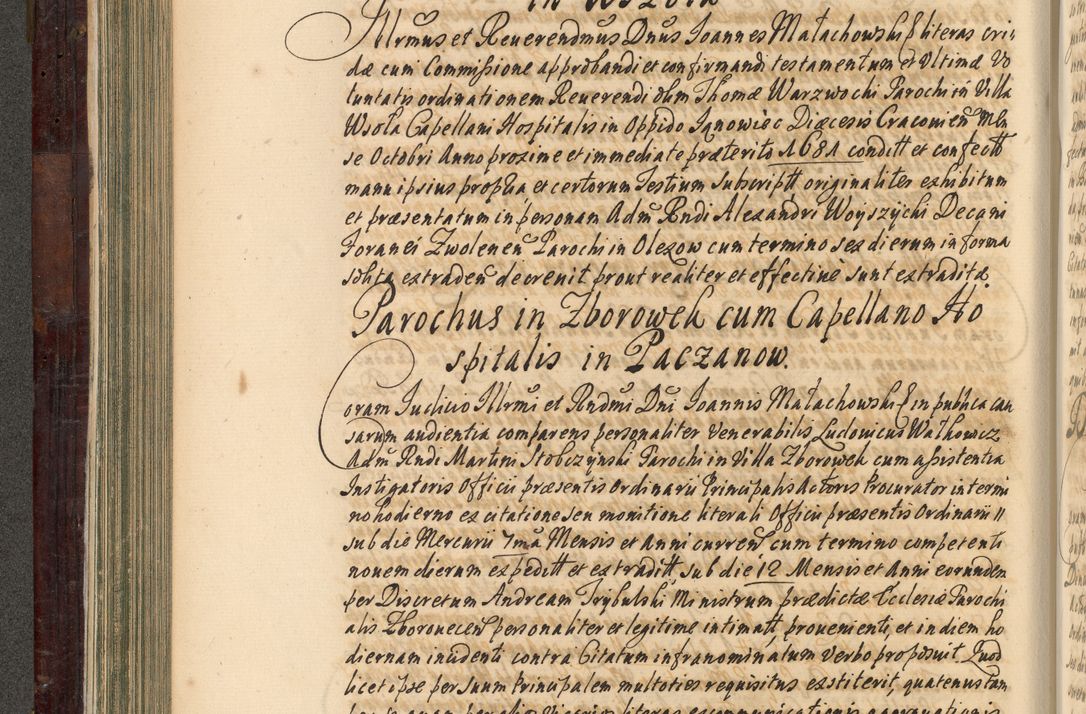 in Wszola
Illrmus et Reuerendmus Dnus Joannes Małachowski E literas cri
dæ cum Commissione approbandi et confirmandi testamentum et Vltimæ Vo
luntatis ordinationem Reuerendi olim Thomæ Warzwochi Parochi in Villa
Wsola Capellani Hospitalis in Oppido Janowiec Diæcesis Cracouien Men
se Octobri Anno proxime et immediate præterito 1681 conditt et confectt
manu ipsius propria et certorum Testium subscriptt originaliter exhibitum
et præsentatum in personam Adm Rndi Alexandri Woyszychi Decani
Foranei Zwolenen Parochi in Olexow cum termino sex dierum in forma
solita extraden decreuit prout realiter et effectiuè sunt extraditæ.
Parochus in Zborowek cum Capellano Ho
spitalis in Paczanow.
Coram Judicio Illrmi et Rndmi Dni Joannis Małachowski E in publica cau
sarum audientia comparens personaliter Venerabilis Ludouicus Walkowicz
Adm Rndi Martini Stobczynski Parochi in Villa Zborowek cum assistentia
Instigatoris Officii præsentis Ordinarii Principalis Actoris Procurator in termi
no hodierno ex citatione seu monitione literali Officii præsentis Ordinarii
sub die Mercurii 7ma Mensis et Anni curren cum termino competenti
nouem dierum expeditt et extraditt, sub die 12 Mensis et Anni eorundem
per Discretum Andream Trybulski Ministrum prædictæ Ecclesiæ Parochi
alis Zborouecen personaliter et legitime intimatt prouenienti, et in diem ho
diernam incidenti contra Citatum infranominatum verbo proposuit Quod
licet ipse per suum Principalem multoties requisitus exstiterit, quatenus tam
literas excommunicationis aggrauationis